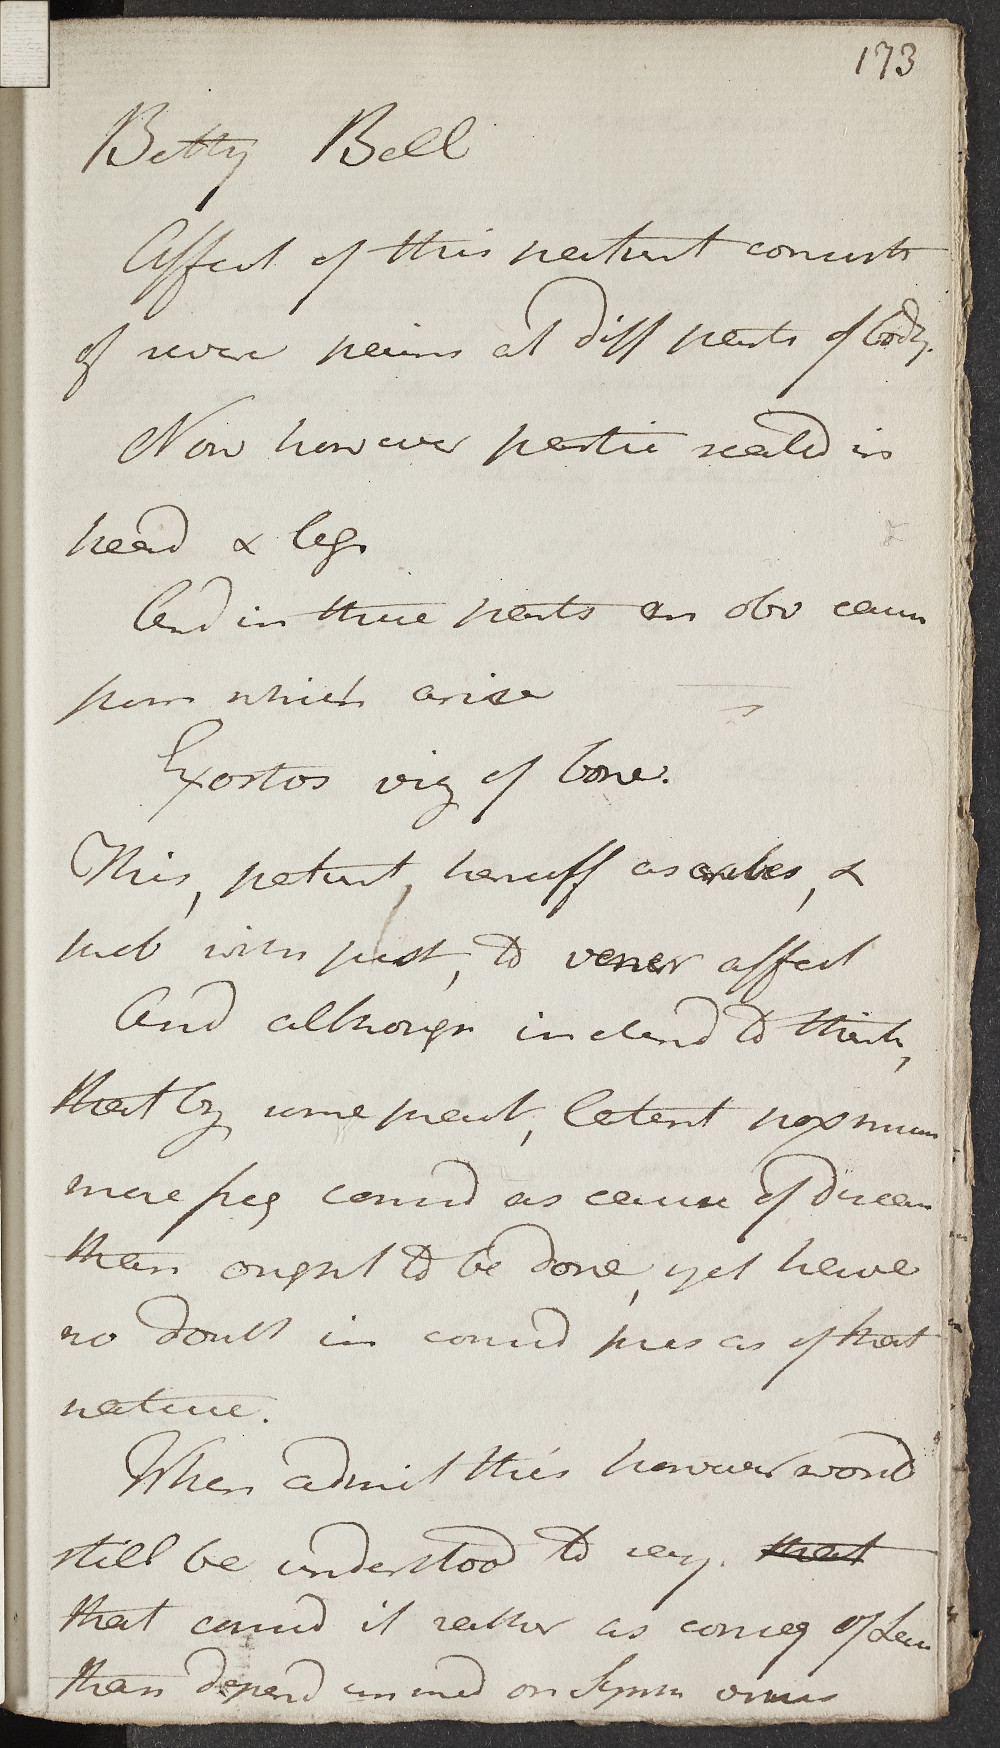 173
Betty Bell
Affect of this patient consists
of severe pains at diff parts of body.
Now however partic seated in
head & legs
And in these parts an obv caus
from which arise
Exostos viz of bone.
This, patient, herself ascribes, &
prob with just, to vener affect
And although inclend to think,
that by some pract, latent pox mun
more freq consid as cause of diseas
than ought to be done, yet have
no doubt in consid pres as of that
nature.
When admit this however would
still be understood to say. that
that consid it rather as conseq of
than depend immed on Syph